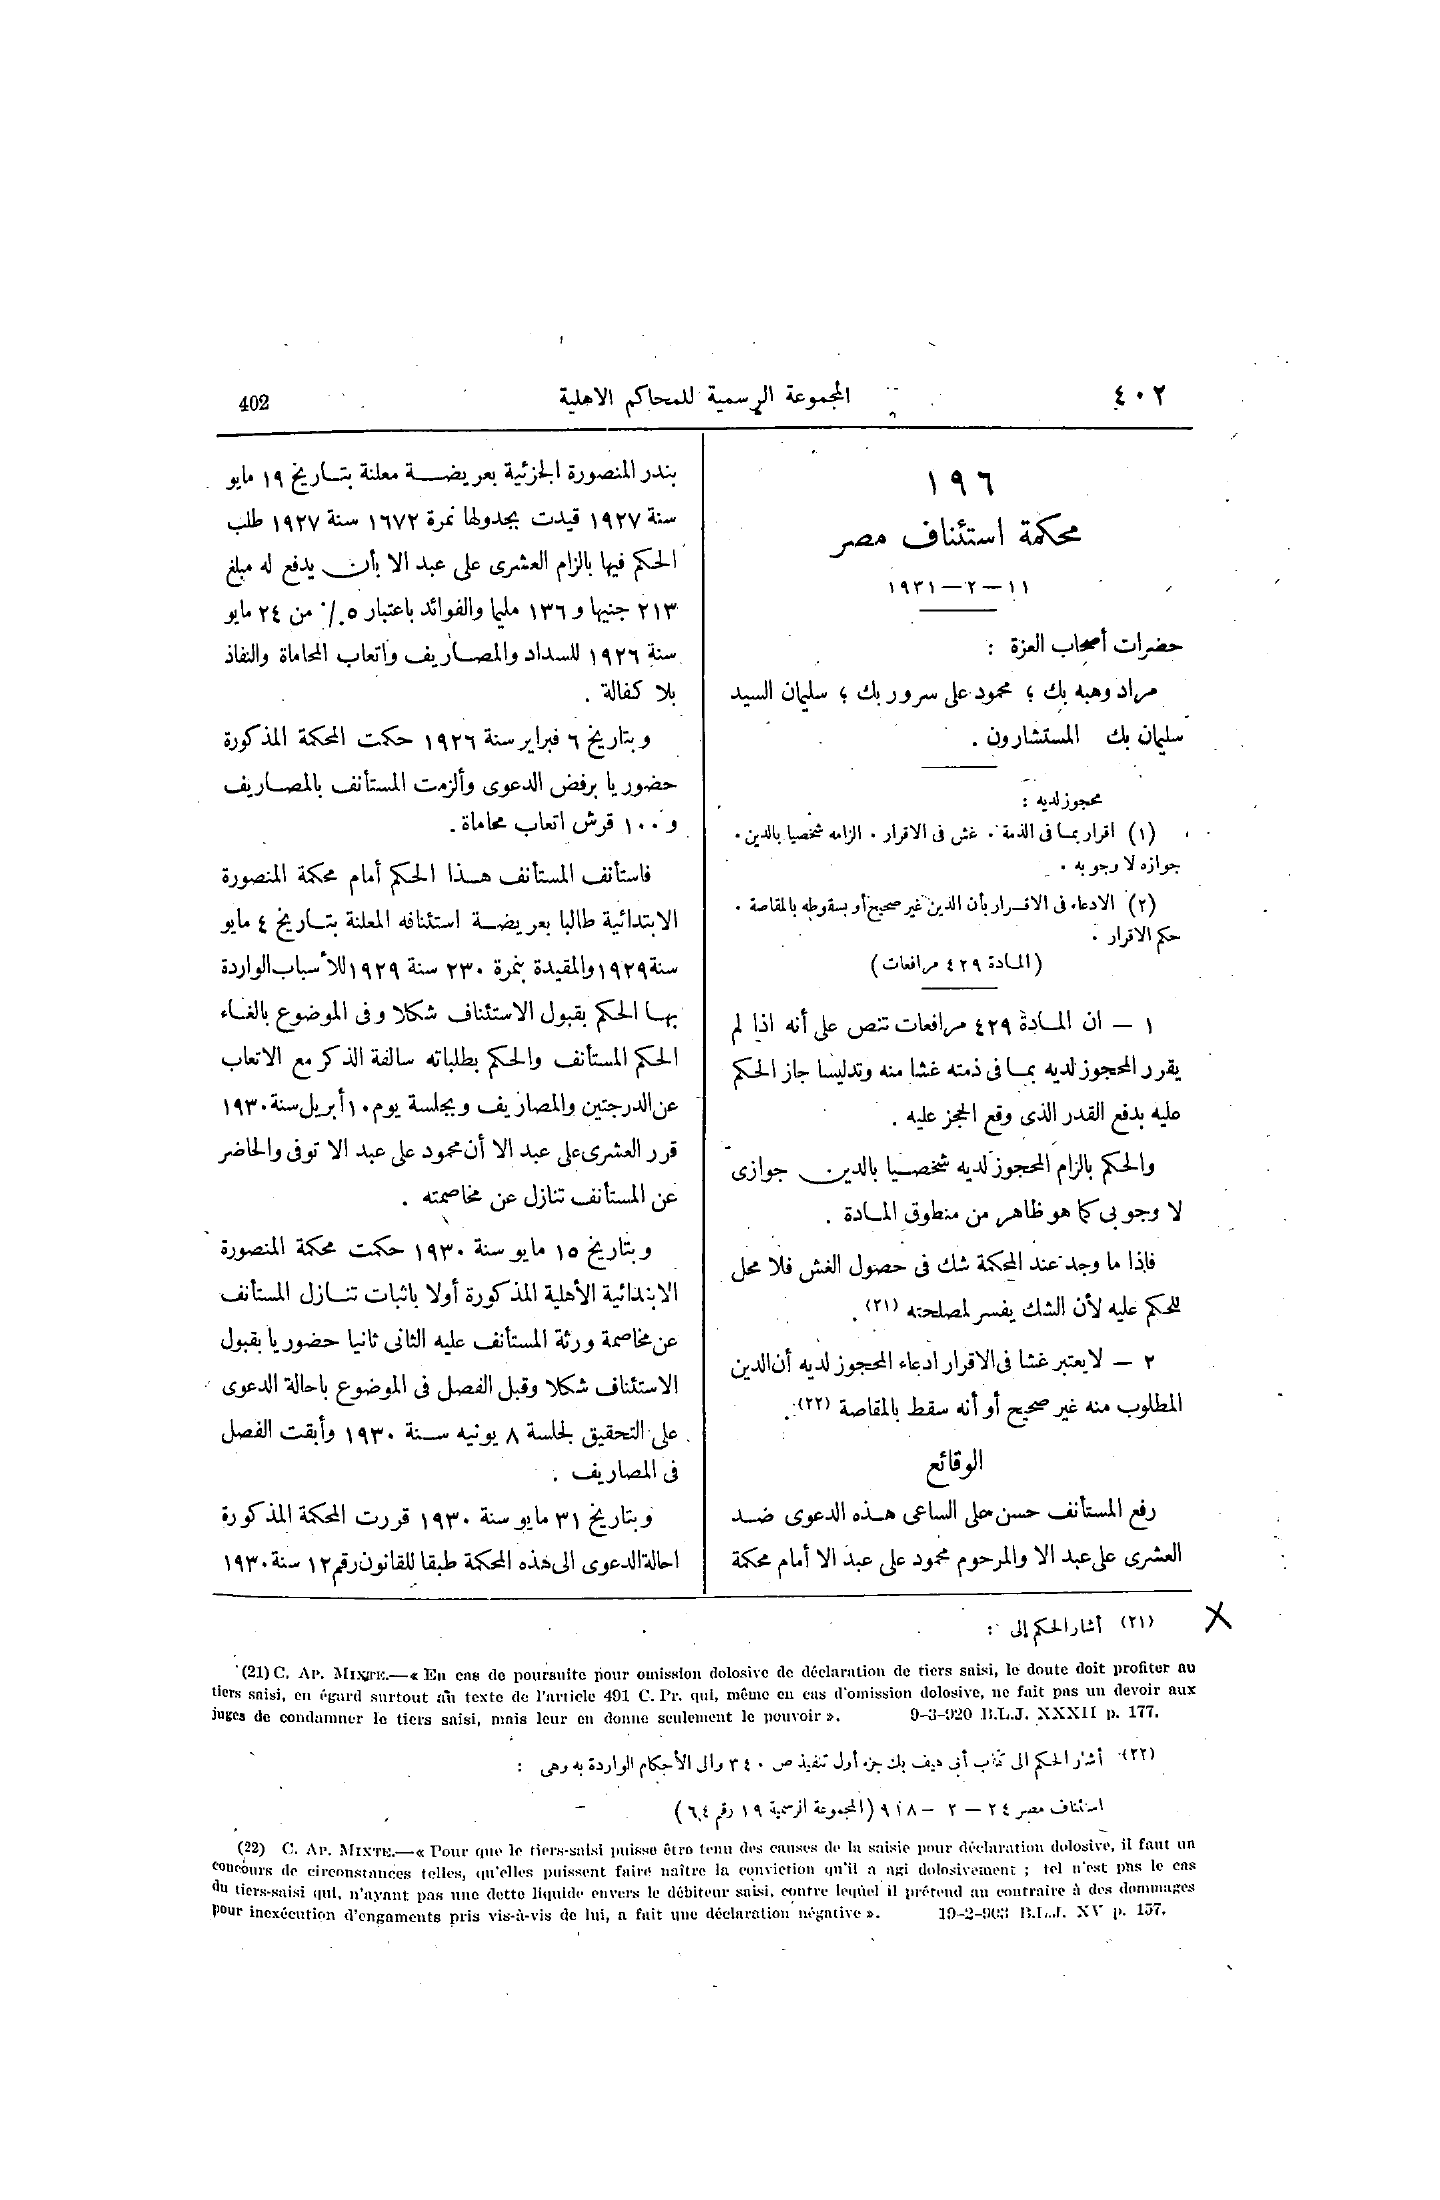 402
المجموعة الرسمية للمحاكم الاهلية
٤٠٢
١٩٦
محكمة استئناف مصر
١١ — ٢ — ١٩٣١
حضرات أصحاب العزة :
مراد وهبه بك ؛ محمود على سرور بك ؛ سليمان السيد
سليمان بك المستشارون .
محجوز لديه :
(١) اقرار بما فى الذمة . غش فى الاقرار . الزامه شخصيا بالدين .
جوازه لا وجوبه .
(٢) الادعاء فى الاقرار بأن الدين غير صحيح أو بسقوطه بالمقاصة .
حكم الاقرار .
(المادة ٤٢٩ مرافعات)
١ — ان المادة ٤٢٩ مرافعات تنص على أنه اذا لم
يقرر المحجوز لديه بما فى ذمته غشا منه وتدليسا جاز الحكم
عليه بدفع القدر الذى وقع الحجز عليه .
والحكم بالزام المحجوز لديه شخصيا بالدين جوازى
لا وجوبى كما هو ظاهر من منطوق المادة .
فإذا ما وجد عند المحكمة شك فى حصول الغش فلا محل
للحكم عليه لأن الشك يفسر لمصلحته (٢١) .
٢ — لا يعتبر غشا فى الاقرار ادعاء المحجوز لديه أن الدين
المطلوب منه غير صحيح أو أنه سقط بالمقاصة (٢٢) .
الوقائع
رفع المستأنف حسن على الساعى هذه الدعوى ضد
العشرى على عبد الا والمرحوم محمود على عبد الا أمام محكمة
بندر المنصورة الجزئية بعريضة معلنة بتاريخ ١٩ مايو
سنة ١٩٢٧ قيدت بجدولها نمرة ١٦٧٢ سنة ١٩٢٧ طلب
الحكم فيها بالزام العشرى على عبد الا بأن يدفع له مبلغ
٢١٣ جنيها و ١٣٦ مليما والفوائد باعتبار ٥ ٪ من ٢٤ مايو
سنة ١٩٢٦ للسداد والمصاريف وأتعاب المحاماة والنفاذ
بلا كفالة .
وبتاريخ ٦ فبراير سنة ١٩٢٦ حكمت المحكمة المذكورة
حضوريا برفض الدعوى وألزمت المستأنف بالمصاريف
و ١٠٠ قرش اتعاب محاماة .
فاستأنف المستأنف هذا الحكم أمام محكمة المنصورة
الابتدائية طالبا بعريضة استئنافه المعلنة بتاريخ ٤ مايو
سنة ١٩٢٩ والمقيدة بنمرة ٢٣٠ سنة ١٩٢٩ للأسباب الواردة
بها الحكم بقبول الاستئناف شكلا وفى الموضوع بالغاء
الحكم المستأنف والحكم بطلباته سالفة الذكر مع الاتعاب
عن الدرجتين والمصاريف وبجلسة يوم ١٠ أبريل سنة ١٩٣٠
قرر العشرى على عبد الا أن محمود على عبد الا توفى والحاضر
عن المستأنف تنازل عن مخاصمته .
وبتاريخ ١٥ مايو سنة ١٩٣٠ حكمت محكمة المنصورة
الابتدائية الأهلية المذكورة أولا باثبات تنازل المستأنف
عن مخاصمة ورثة المستأنف عليه الثانى ثانيا حضوريا بقبول
الاستئناف شكلا وقبل الفصل فى الموضوع باحالة الدعوى
على التحقيق لجلسة ٨ يونيه سنة ١٩٣٠ وأبقت الفصل
فى المصاريف .
وبتاريخ ٣١ مايو سنة ١٩٣٠ قررت المحكمة المذكورة
احالة الدعوى الى هذه المحكمة طبقا للقانون رقم ١٢ سنة ١٩٣٠
(٢١) أشار الحكم إلى :
(21) C. AP. MIXTE.—« En cas de poursuite pour omission dolosive de déclaration de tiers saisi, le doute doit profiter au
tiers saisi, en égard surtout au texte de l'article 491 C. Pr. qui, même en cas d'omission dolosive, ne fait pas un devoir aux
juges de condamner le tiers saisi, mais leur en donne seulement le pouvoir ». 9-3-920 B.L.J. XXXII p. 177.
(٢٢) أشار الحكم الى كتاب أبى هيف بك جزء أول تنفيذ ص ٣٤٠ والى الأحكام الواردة به وهى :
استئناف مصر ٢٤ — ٢ — ٩١٨ (المجموعة الرسمية ١٩ رقم ٦٤)
(22) C. AP. MIXTE.—« Pour que le tiers-saisi puisse être tenu des causes de la saisie pour déclaration dolosive, il faut un
concours de circonstances telles, qu'elles puissent faire naître la conviction qu'il a agi dolosivement ; tel n'est pas le cas
du tiers-saisi qui, n'ayant pas une dette liquide envers le débiteur saisi, contre lequel il prétend au contraire à des dommages
pour inexécution d'engaments pris vis-à-vis de lui, a fait une déclaration négative ». 19-2-903 B.L.J. XV p. 157.